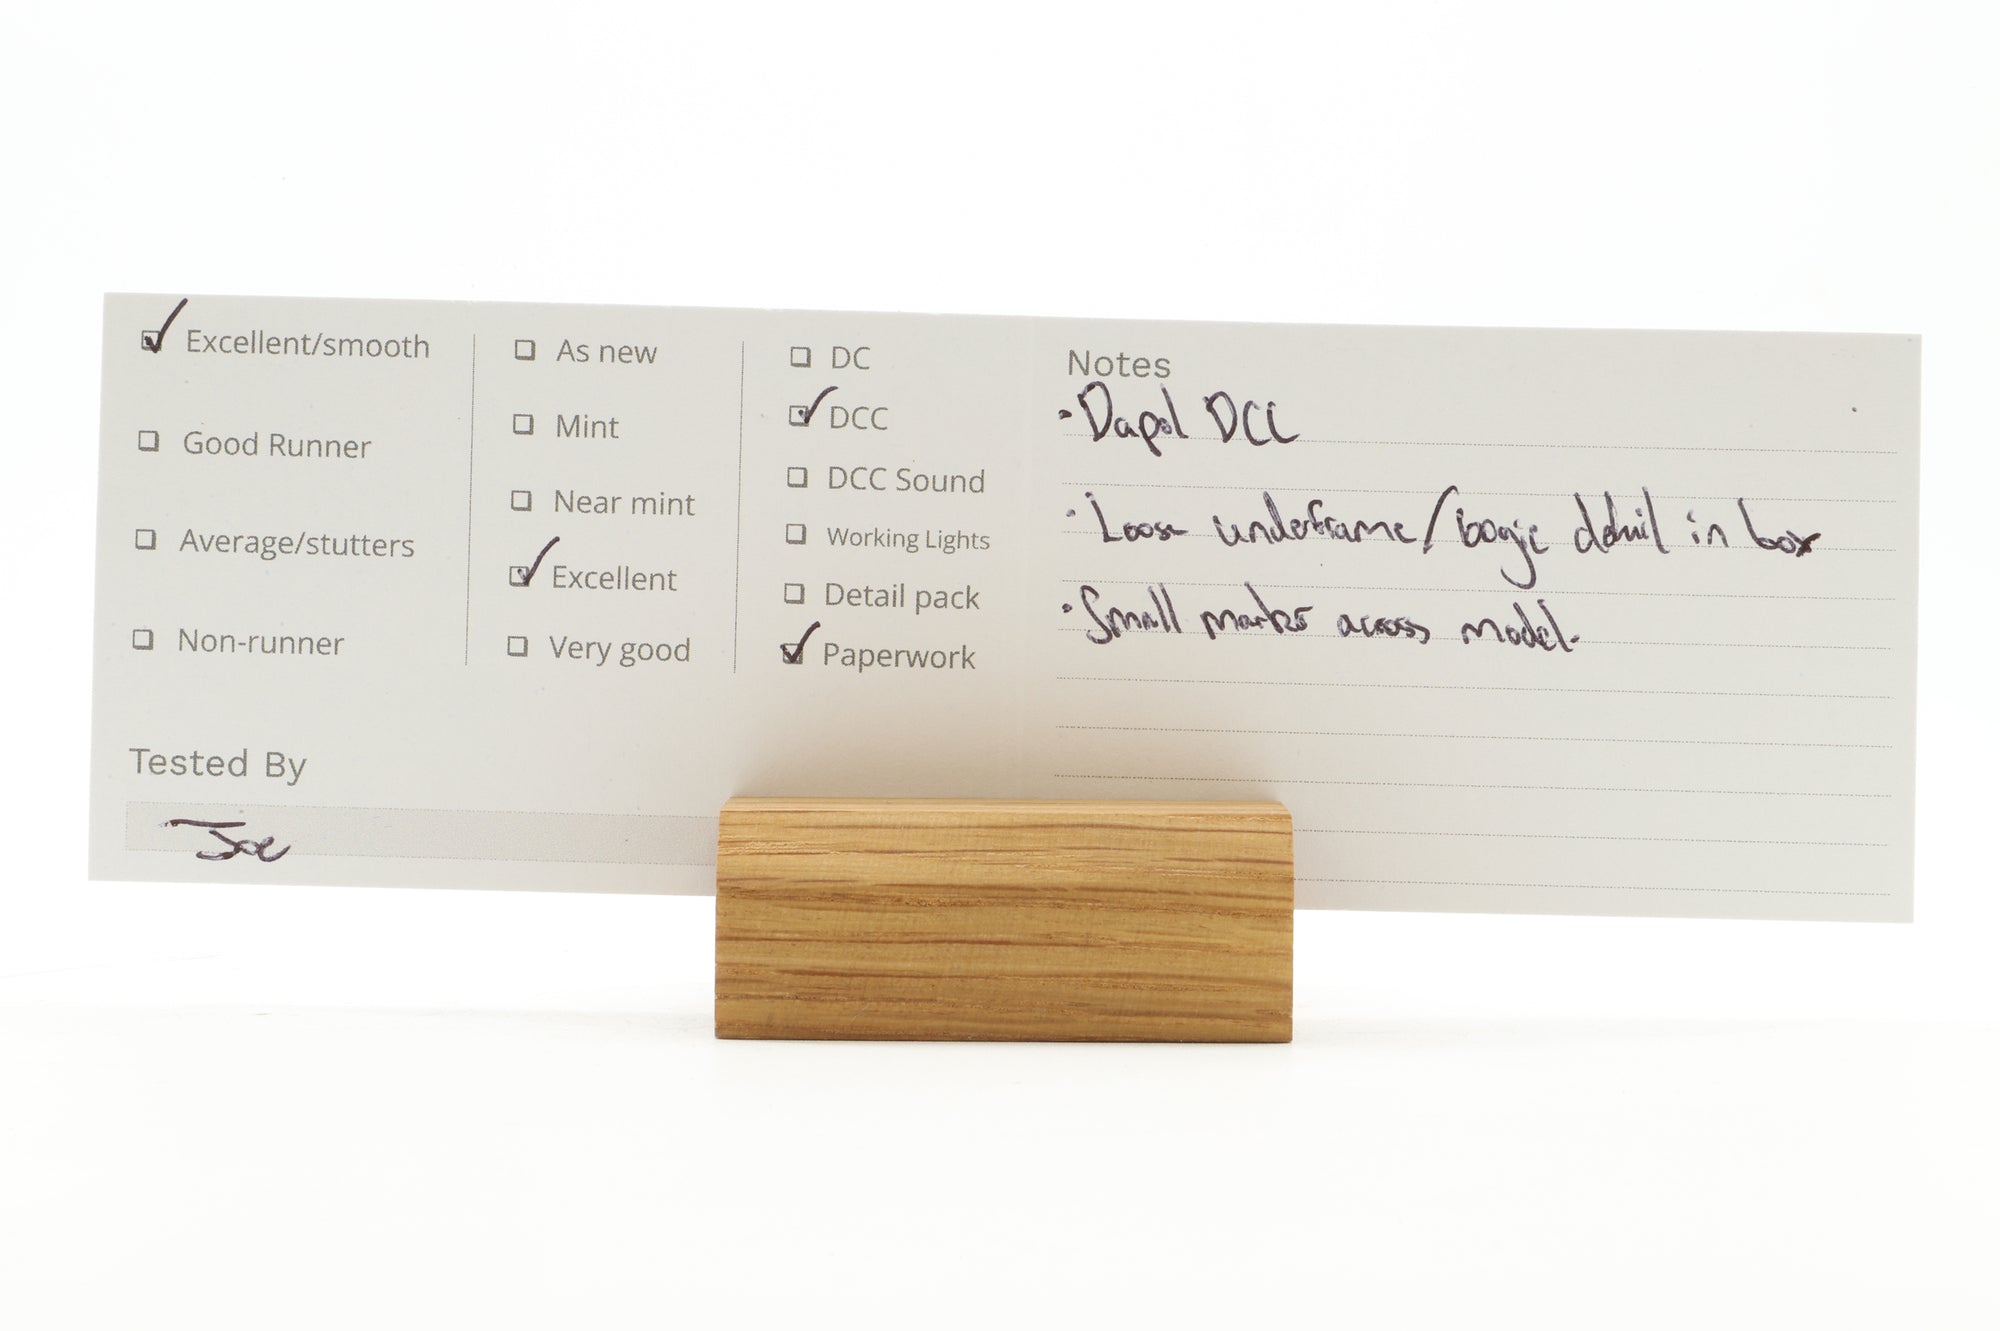 Excellent/smooth
Good Runner
Average/stutters
Non-runner
As new
Mint
Near mint
Excellent
Very good
DC
DCC
DCC Sound
Working Lights
Detail pack
Paperwork
Tested By
Joe
Notes
· Dapol DCC
· Loose underframe/bogie detail in box
· Small marks across model.